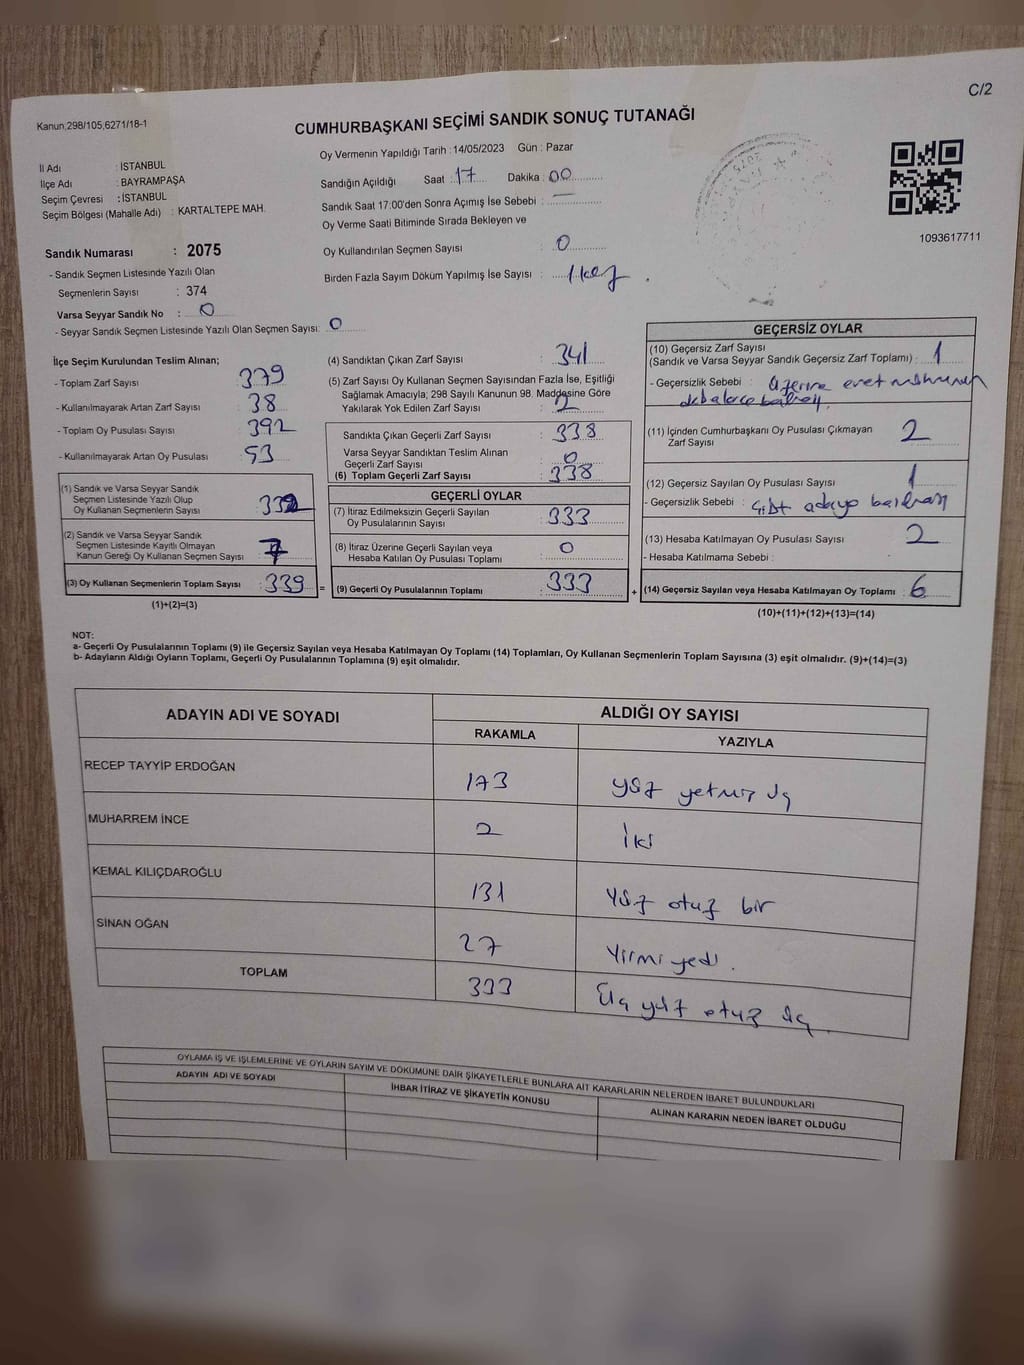 C/2
Kanun;298/105,6271/18-1
CUMHURBAŞKANI SEÇİMİ SANDIK SONUÇ TUTANAĞI
İl Adı : İSTANBUL
İlçe Adı : BAYRAMPAŞA
Seçim Çevresi : İSTANBUL
Seçim Bölgesi (Mahalle Adı) : KARTALTEPE MAH.
Sandık Numarası : 2075
- Sandık Seçmen Listesinde Yazılı Olan
Seçmenlerin Sayısı : 374
Varsa Seyyar Sandık No : 0
- Seyyar Sandık Seçmen Listesinde Yazılı Olan Seçmen Sayısı: 0
Oy Vermenin Yapıldığı Tarih : 14/05/2023 Gün : Pazar
Sandığın Açıldığı Saat : 17 Dakika : 00
Sandık Saat 17:00'den Sonra Açımış İse Sebebi : —
Oy Verme Saati Bitiminde Sırada Bekleyen ve
Oy Kullandırılan Seçmen Sayısı : 0
Birden Fazla Sayım Döküm Yapılmış İse Sayısı : 1 kez
1093617711
İlçe Seçim Kurulundan Teslim Alınan;
- Toplam Zarf Sayısı 379
- Kullanılmayarak Artan Zarf Sayısı 38
- Toplam Oy Pusulası Sayısı 392
- Kullanılmayarak Artan Oy Pusulası 53
(1) Sandık ve Varsa Seyyar Sandık
Seçmen Listesinde Yazılı Olup
Oy Kullanan Seçmenlerin Sayısı : 332
(2) Sandık ve Varsa Seyyar Sandık
Seçmen Listesinde Kayıtlı Olmayan
Kanun Gereği Oy Kullanan Seçmen Sayısı : 7
(3) Oy Kullanan Seçmenlerin Toplam Sayısı : 339 =
(1)+(2)=(3)
(4) Sandıktan Çıkan Zarf Sayısı : 341
(5) Zarf Sayısı Oy Kullanan Seçmen Sayısından Fazla İse, Eşitliği
Sağlamak Amacıyla; 298 Sayılı Kanunun 98. Maddesine Göre
Yakılarak Yok Edilen Zarf Sayısı : 2
Sandıkta Çıkan Geçerli Zarf Sayısı : 338
Varsa Seyyar Sandıktan Teslim Alınan
Geçerli Zarf Sayısı : 0
(6) Toplam Geçerli Zarf Sayısı : 338
GEÇERLİ OYLAR
(7) İtiraz Edilmeksizin Geçerli Sayılan
Oy Pusulalarının Sayısı : 333
(8) İtiraz Üzerine Geçerli Sayılan veya
Hesaba Katılan Oy Pusulası Toplamı : 0
(9) Geçerli Oy Pusulalarının Toplamı : 333 +
GEÇERSİZ OYLAR
(10) Geçersiz Zarf Sayısı
(Sandık ve Varsa Seyyar Sandık Geçersiz Zarf Toplamı) : 1
- Geçersizlik Sebebi : üzerine evet mührünün
(11) İçinden Cumhurbaşkanı Oy Pusulası Çıkmayan
Zarf Sayısı : 2
(12) Geçersiz Sayılan Oy Pusulası Sayısı : 1
- Geçersizlik Sebebi : Çift adaya basılması
(13) Hesaba Katılmayan Oy Pusulası Sayısı : 2
- Hesaba Katılmama Sebebi :
(14) Geçersiz Sayılan veya Hesaba Katılmayan Oy Toplamı : 6
(10)+(11)+(12)+(13)=(14)
NOT:
a- Geçerli Oy Pusulalarının Toplamı (9) ile Geçersiz Sayılan veya Hesaba Katılmayan Oy Toplamı (14) Toplamları, Oy Kullanan Seçmenlerin Toplam Sayısına (3) eşit olmalıdır. (9)+(14)=(3)
b- Adayların Aldığı Oyların Toplamı, Geçerli Oy Pusulalarının Toplamına (9) eşit olmalıdır.
ADAYIN ADI VE SOYADI ALDIĞI OY SAYISI
RAKAMLA YAZIYLA
RECEP TAYYİP ERDOĞAN 173 yüz yetmiş üç
MUHARREM İNCE 2 İki
KEMAL KILIÇDAROĞLU 131 Yüz otuz bir
SİNAN OĞAN 27 Yirmi yedi.
TOPLAM 333 Üç yüz otuz üç
OYLAMA İŞ VE İŞLEMLERİNE VE OYLARIN SAYIM VE DÖKÜMÜNE DAİR ŞİKAYETLERLE BUNLARA AİT KARARLARIN NELERDEN İBARET BULUNDUKLARI
ADAYIN ADI VE SOYADI İHBAR İTİRAZ VE ŞİKAYETİN KONUSU ALINAN KARARIN NEDEN İBARET OLDUĞU